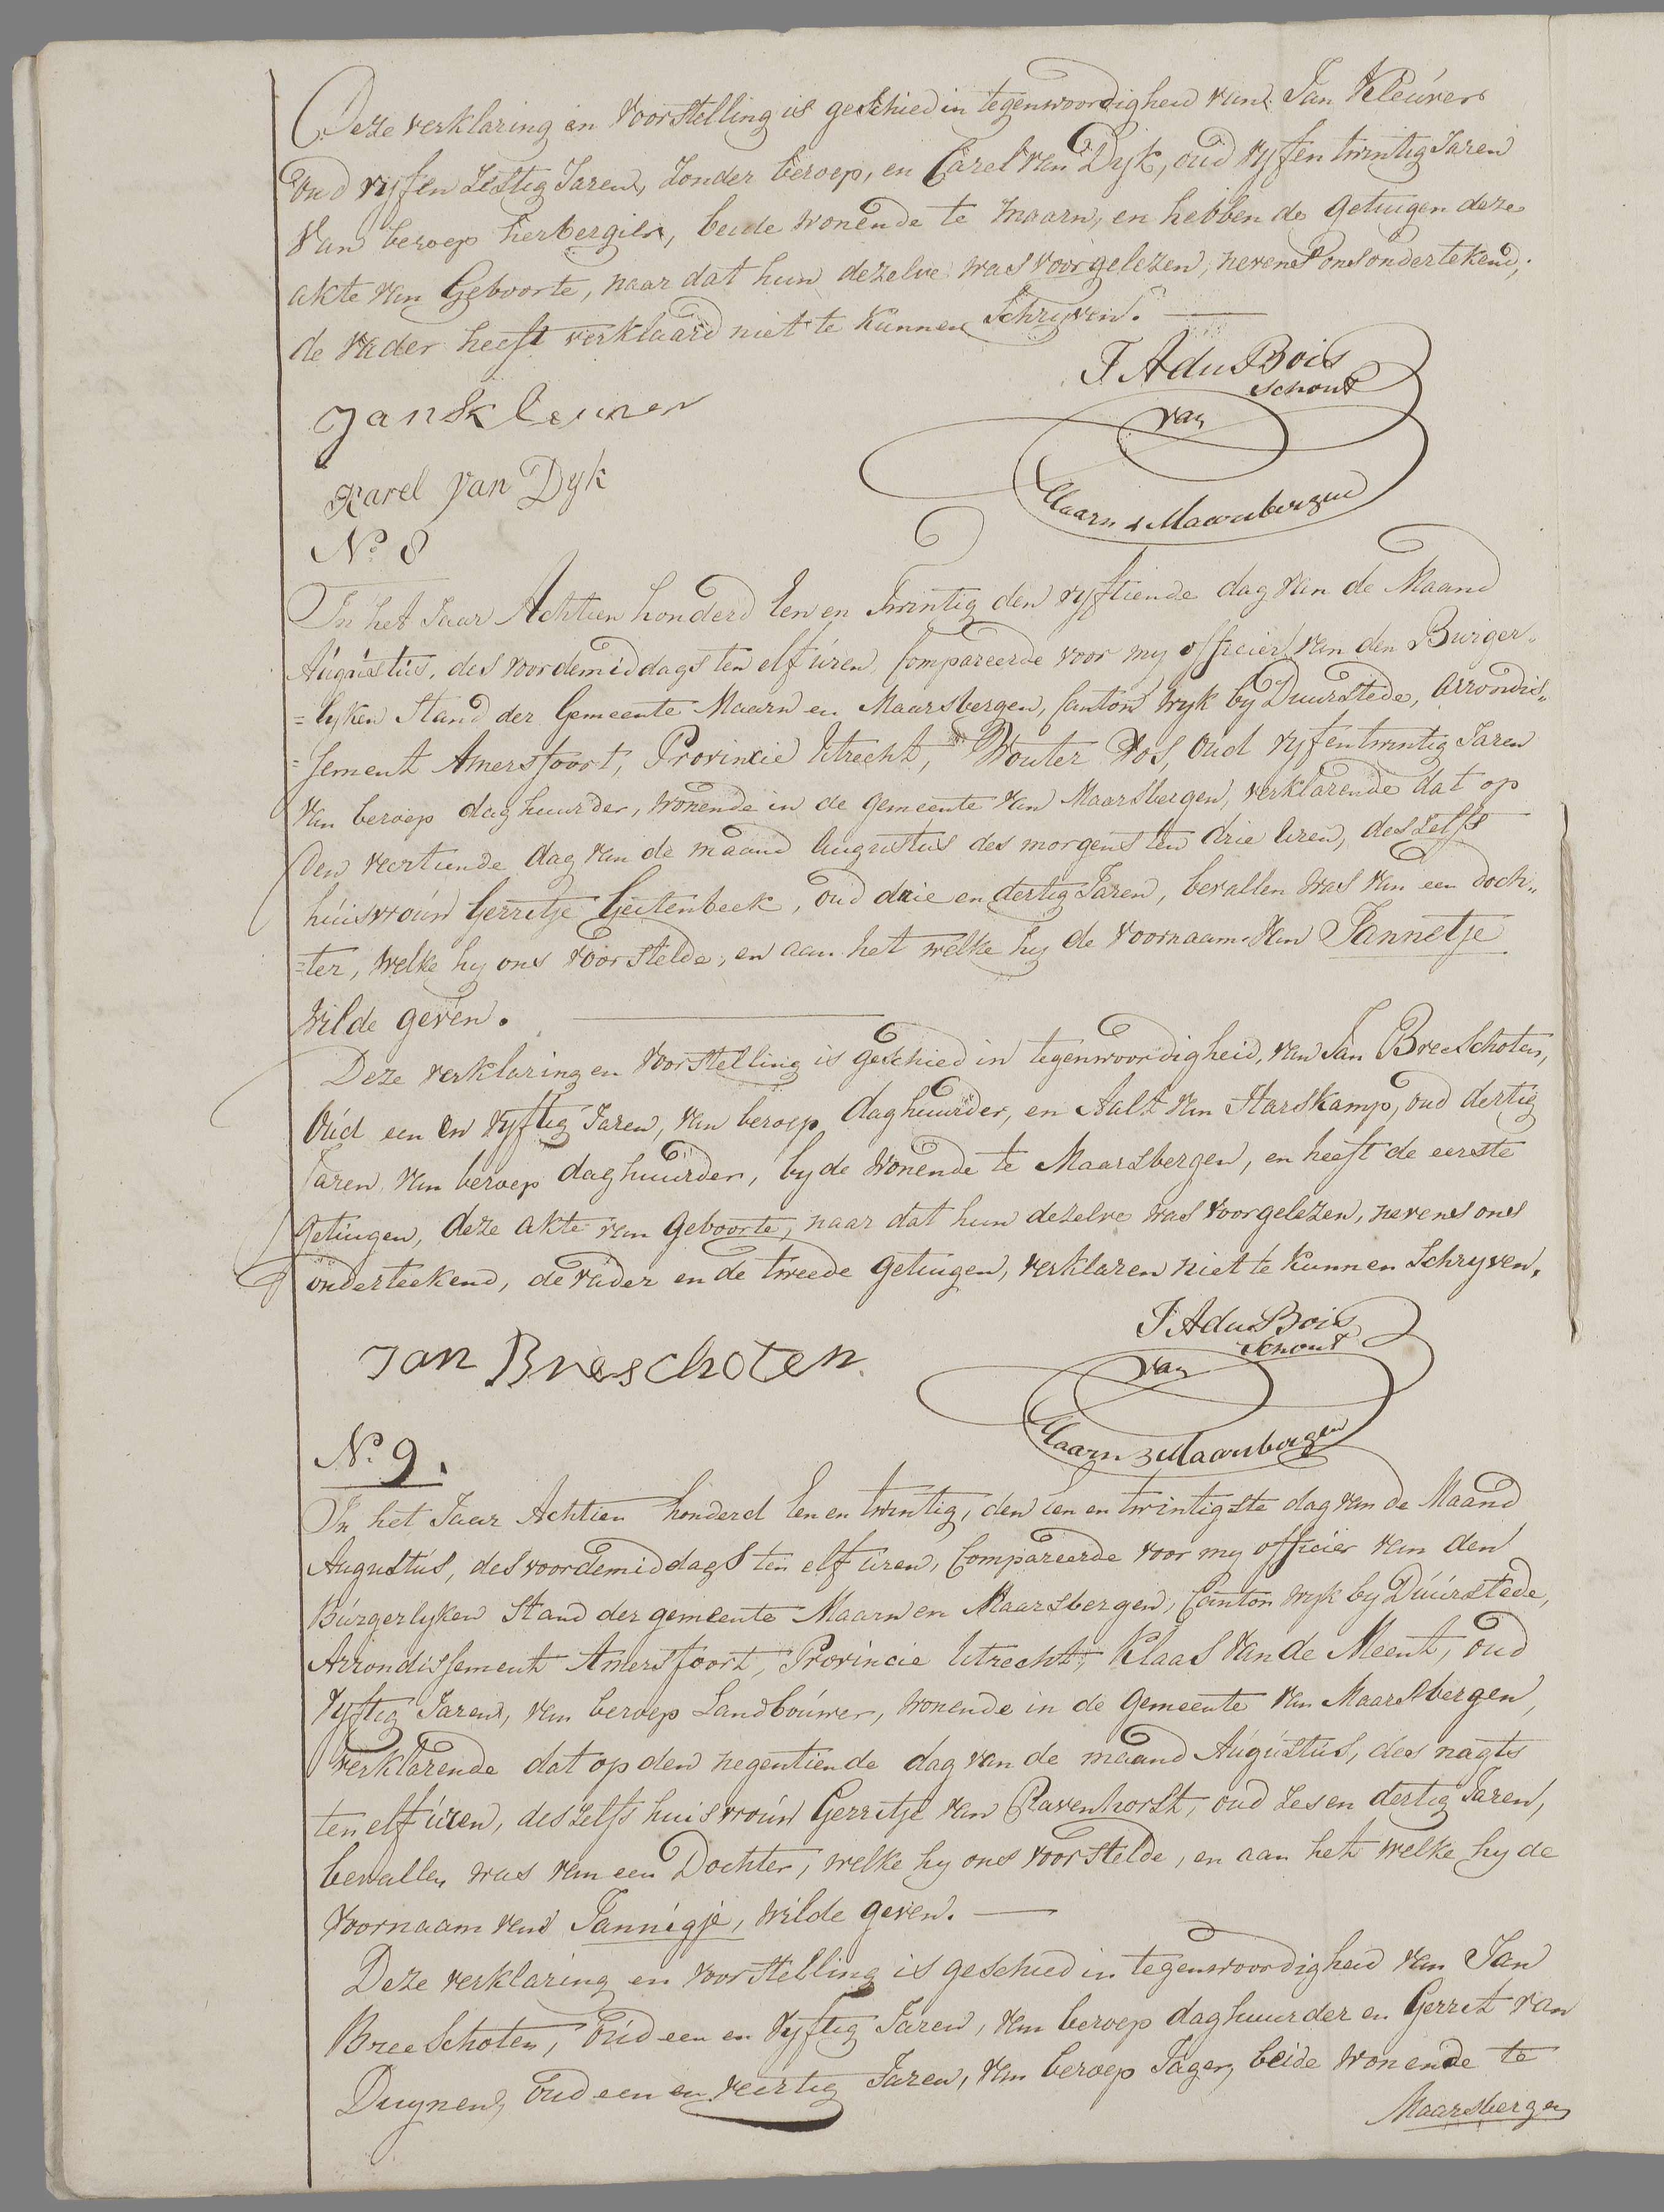 Deze verklaring en voorstelling is geschied in tegenwoordigheid van Jan Kleuver
oud vyf en zestig Jaren, zonder beroep, en Carel van Dyk, oud vyf en twintig Jaren
van beroep herbergier, beide wonende te Maarn, en hebben de getuigen deze
akte van Geboorte, naar dat hun dezelve was voorgelezen, nevens ons ondertekend;
de vader heeft verklaard niet te kunnen Schryven. —
J A du Bois
Schout
van
Maarn & Maarsbergen
Jan Kleuver
Karel van Dyk
No 8
In het Jaar Achtien honderd Een en Twintig den vyftiende dag van de Maand
Augustus, des voordemiddags ten elf uren, Compareerde voor my officier van den Burger„
=lyken Stand der Gemeente Maarn en Maarsbergen, Canton Wyk by Duurstede, Arrondis„
=sement Amersfoort, Provincie Utrecht, Wouter Vos, Oud vyf en twintig Jaren
van beroep daghuurder, wonende in de gemeente van Maarsbergen, verklarende dat op
den veertiende dag van de maand Augustus des morgens ten drie Uren, deszelfs
huisvrouw Gerretje Geitenbeek, oud drie en dertig Jaren, bevallen was van een doch„
=ter, welke hy ons voorstelde, en aan het welke hy de voornaam van Jannetje
wilde geven. —
Deze verklaring en voorstelling is geschied in tegenwoordigheid, van Jan Breeschoten,
Oud een en vyftig Jaren, van beroep daghuurder, en Aalt van Harskamp, oud dertig
Jaren, van beroep daghuurder, byde wonende te Maarsbergen, en heeft de eerste
getuigen, deze akte van geboorte, naar dat hun dezelve was voorgelezen, nevens ons
onderteekend, de vader en de tweede getuigen, verklaren niet te kunnen Schryven.
J A du Bois
Schout
van
Maarn & Maarsbergen
Jan Breeschoten
No. 9.
In het Jaar Achtien honderd Een en twintig, den een en twintigste dag van de Maand
Augustus, des voordemiddags ten elf uren, Compareerde voor my officier van den
Burgerlyken Stand der gemeente Maarn en Maarsbergen, Canton Wyk by Duurstede,
Arrondissement Amersfoort, Provincie Utrecht, Klaas van de Meent, oud
vyftig Jaren, van beroep Landbouwer, wonende in de gemeente van Maarsbergen,
verklarende dat op den negentiende dag van de maand Augustus, des nagts
ten elf uren, deszelfs huisvrouw Gerretje van Ravenhorst, oud zes en dertig Jaren,
bevallen was van een Dochter, welke hy ons voorstelde, en aan het welke hy de
voornaam van Jannigje, wilde geven. —
Deze verklaring en voorstelling is geschied in tegenwoordigheid van Jan
Breeschoten, Oud een en vyftig Jaren, van beroep daghuurder en Gerret van
Duynen, oud een en veertig Jaren, van beroep Jager, beide wonende te
Maarsbergen